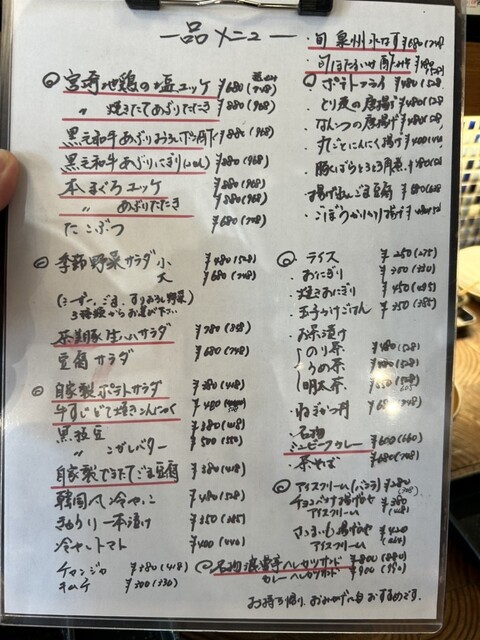 一品メニュー
宮崎地鶏の塩ユッケ ¥680(748)
〃 焼きたてあぶりたたき ¥880(968)
黒毛和牛あぶりおろしポン酢 ¥880(968)
黒毛和牛あぶりにぎり ¥880(968)
本まぐろユッケ ¥880(968)
〃 あぶりたたき ¥880(968)
たこぶつ ¥680(748)
季節野菜サラダ 小 ¥480(528)
大 ¥680(748)
(シーザー、ごま、すりおろし野菜)
3種類からお選び下さい
茶美豚生ハムサラダ ¥780(858)
豆腐サラダ ¥680(748)
自家製ポテトサラダ ¥380(418)
牛すじどて焼きこんにゃく
黒枝豆 ¥380(418)
〃 こがしバター ¥500(550)
自家製できたてごま豆腐 ¥380(418)
韓国風冷やっこ ¥480(528)
きゅうり一本漬け ¥350(385)
冷やしトマト ¥400(440)
チャンジャ ¥380(418)
キムチ ¥300(330)
旬 泉州水なす ¥680(748)
ポテトフライ ¥480(528)
とり皮の唐揚げ ¥480(528)
なんこつの唐揚げ ¥480(528)
丸ごとにんにく揚げ ¥400(440)
豚ばらとろとろ角煮
揚げ出しごま豆腐
ごぼうかりかり揚げ
ライス ¥250(275)
おにぎり ¥300(330)
焼きおにぎり ¥450(495)
玉子かけごはん ¥350(385)
お茶漬け
のり茶 ¥480(528)
うめ茶 ¥480(528)
明太茶
ねぎめし ¥680(748)
名物
ビーフカレー ¥600(660)
茶そば ¥680(748)
アイスクリーム(バニラ) ¥280
アイスクリーム
さつまいも揚げ ¥420
アイスクリーム
名物 ヘレカツサンド ¥800(880)
カレーヘレカツサンド ¥900(990)
お持ち帰り、おみやげにおすすめです。